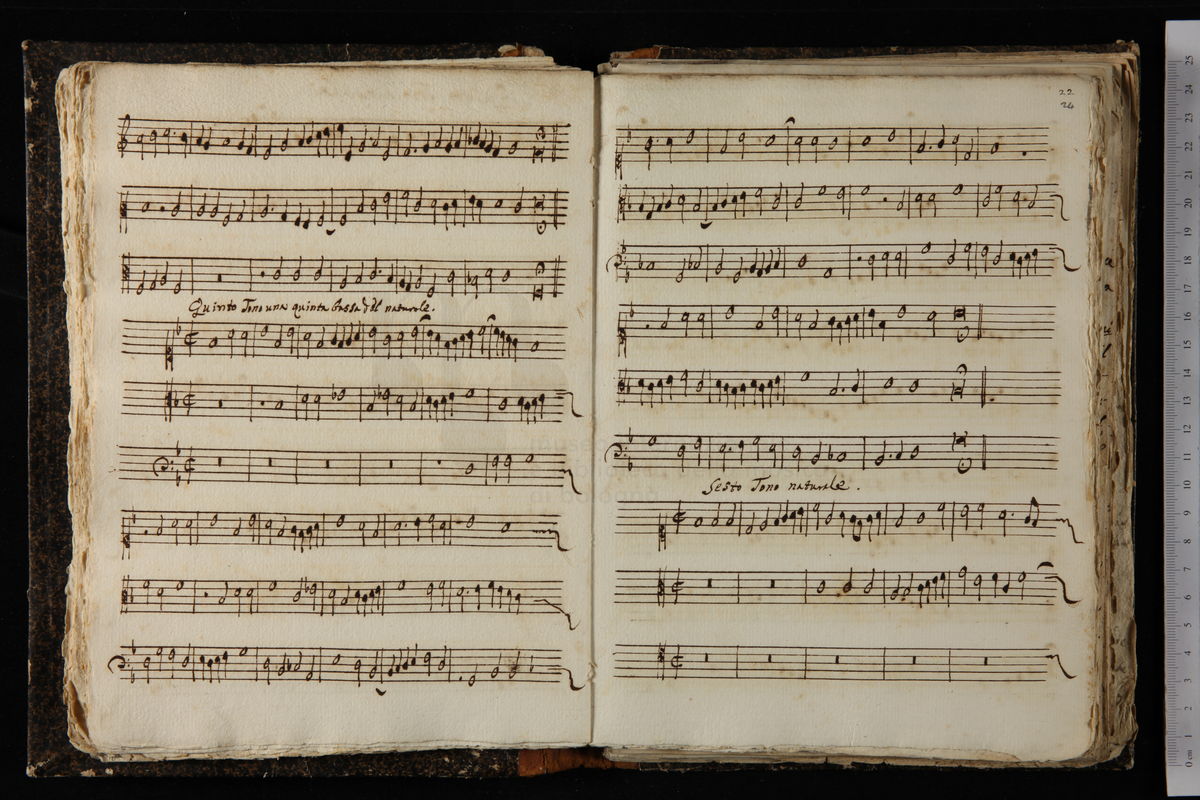 Quinto Tono una quinta bassa del naturale.
22
24
Sesto Tono naturale.
25
24
23
22
21
20
19
18
17
16
15
14
13
12
11
10
9
8
7
6
5
4
3
2
1
0 cm